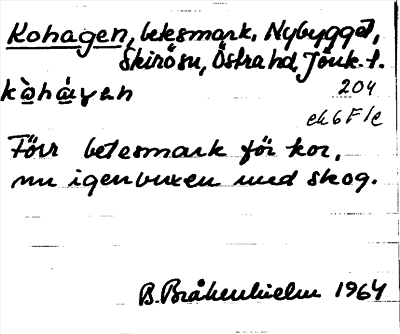 Kohagen, betesmark, Nybygget,
Skirösn, Östra hd, Jönk. l.
kòhá̱gen
204
ek 6 F 1c
Förr betesmark för kor,
nu igenvuxen med skog.
B. Bråkenhielm 1964